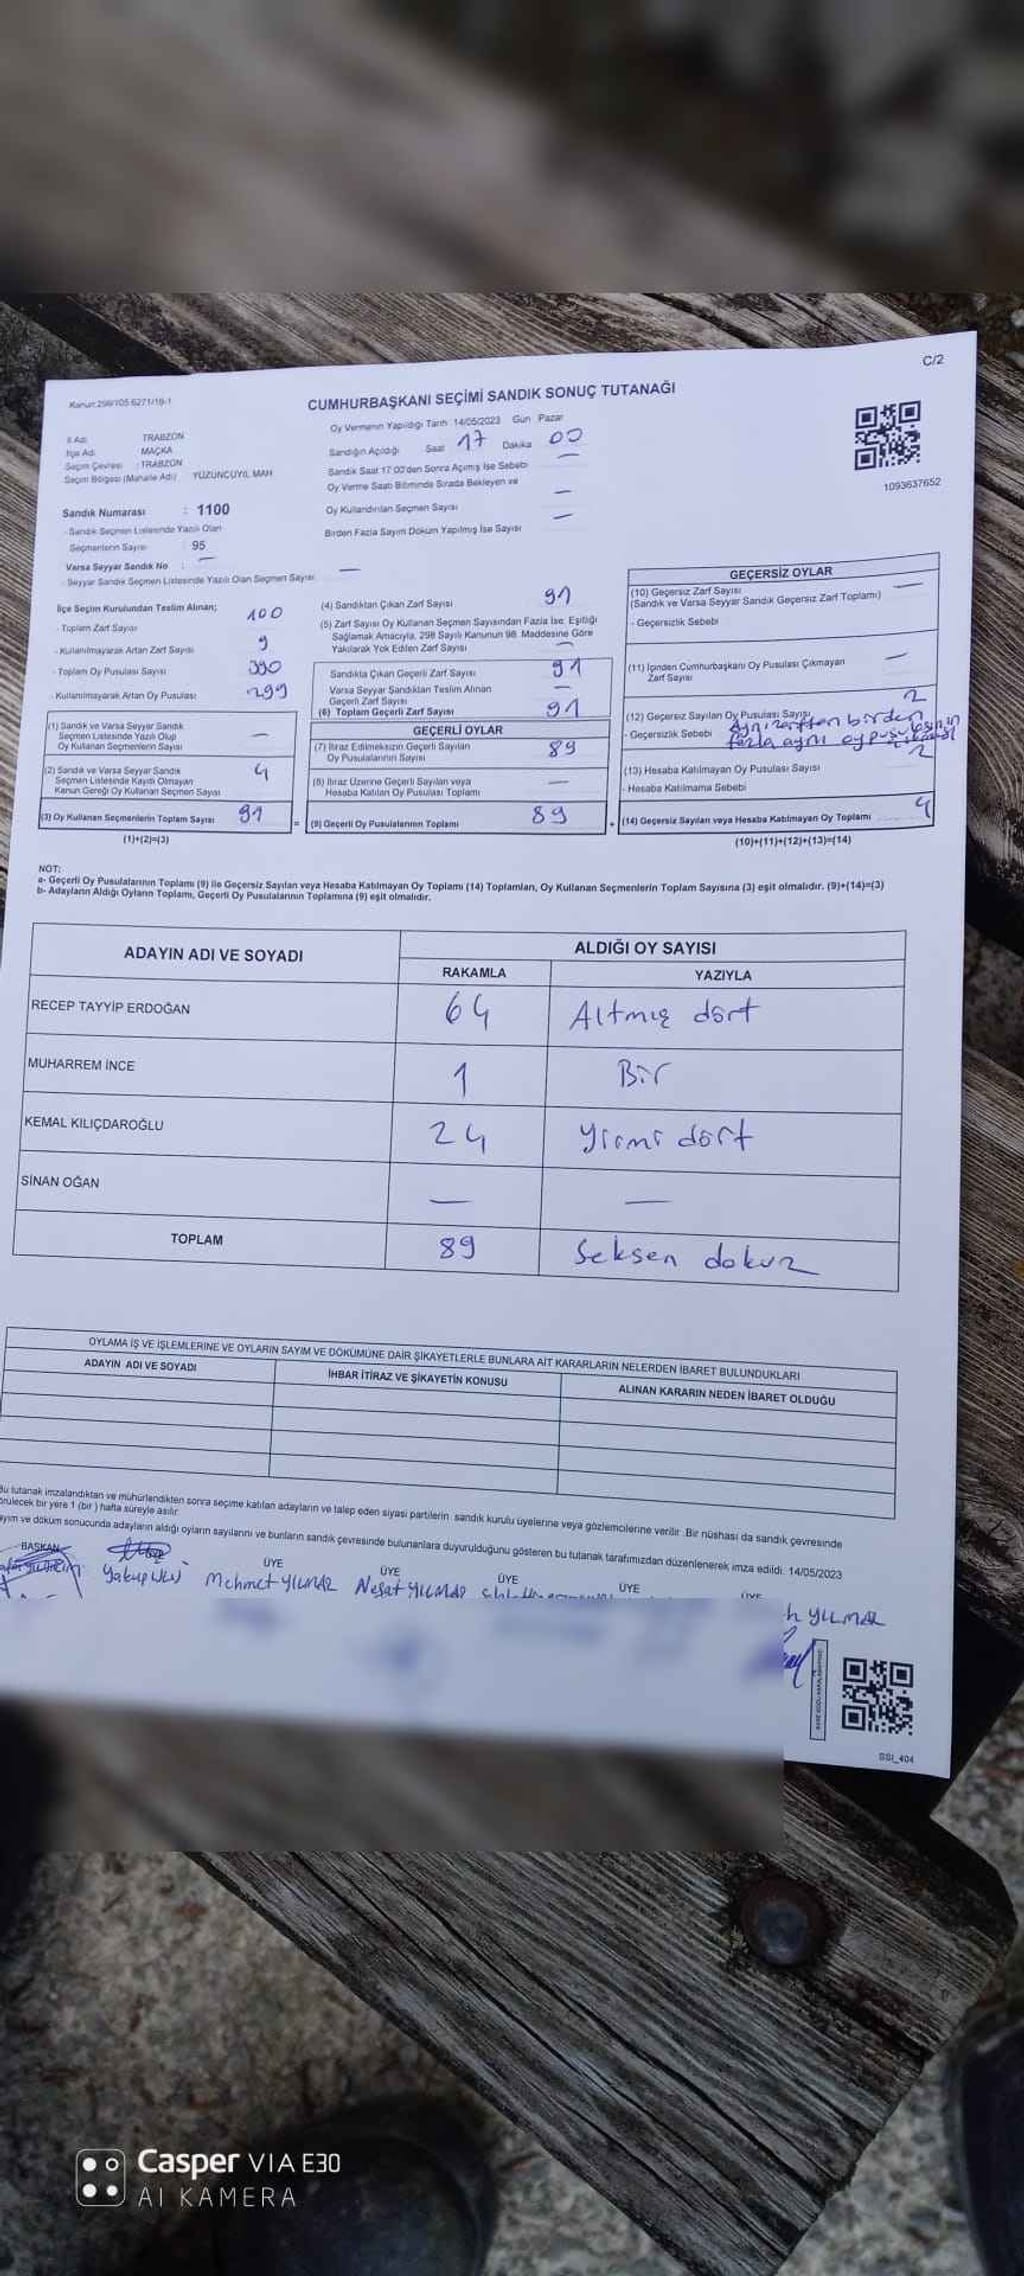 C/2
Kanun:298/105 6271/19-1
CUMHURBAŞKANI SEÇİMİ SANDIK SONUÇ TUTANAĞI
İl Adı : TRABZON
İlçe Adı : MAÇKA
Seçim Çevresi : TRABZON
Seçim Bölgesi (Mahalle Adı) : YÜZÜNCÜYIL MAH
Oy Vermenin Yapıldığı Tarih 14/05/2023 Gün Pazar
Sandığın Açıldığı Saat 17 Dakika 00
Sandık Saat 17:00'den Sonra Açılmış İse Sebebi —
Oy Verme Saati Bitiminde Sırada Bekleyen ve
Oy Kullandırılan Seçmen Sayısı —
Birden Fazla Sayım Döküm Yapılmış İse Sayısı —
1093637652
Sandık Numarası : 1100
- Sandık Seçmen Listesinde Yazılı Olan
Seçmenlerin Sayısı : 95
Varsa Seyyar Sandık No : —
- Seyyar Sandık Seçmen Listesinde Yazılı Olan Seçmen Sayısı —
İlçe Seçim Kurulundan Teslim Alınan;
- Toplam Zarf Sayısı 100
- Kullanılmayarak Artan Zarf Sayısı 9
- Toplam Oy Pusulası Sayısı 390
- Kullanılmayarak Artan Oy Pusulası 299
(1) Sandık ve Varsa Seyyar Sandık
Seçmen Listesinde Yazılı Olup
Oy Kullanan Seçmenlerin Sayısı —
(2) Sandık ve Varsa Seyyar Sandık
Seçmen Listesinde Kayıtlı Olmayan
Kanun Gereği Oy Kullanan Seçmen Sayısı 4
(3) Oy Kullanan Seçmenlerin Toplam Sayısı 91
(1)+(2)=(3)
(4) Sandıktan Çıkan Zarf Sayısı 91
(5) Zarf Sayısı Oy Kullanan Seçmen Sayısından Fazla İse, Eşitliği
Sağlamak Amacıyla, 298 Sayılı Kanunun 98. Maddesine Göre
Yakılarak Yok Edilen Zarf Sayısı —
Sandıkta Çıkan Geçerli Zarf Sayısı 91
Varsa Seyyar Sandıktan Teslim Alınan
Geçerli Zarf Sayısı —
(6) Toplam Geçerli Zarf Sayısı 91
GEÇERLİ OYLAR
(7) İtiraz Edilmeksizin Geçerli Sayılan
Oy Pusulalarının Sayısı 89
(8) İtiraz Üzerine Geçerli Sayılan veya
Hesaba Katılan Oy Pusulası Toplamı —
= (9) Geçerli Oy Pusulalarının Toplamı 89
GEÇERSİZ OYLAR
(10) Geçersiz Zarf Sayısı
(Sandık ve Varsa Seyyar Sandık Geçersiz Zarf Toplamı) —
- Geçersizlik Sebebi
(11) İçinden Cumhurbaşkanı Oy Pusulası Çıkmayan
Zarf Sayısı —
(12) Geçersiz Sayılan Oy Pusulası Sayısı 2
- Geçersizlik Sebebi Aynı zarftan birden
fazla aynı oy pusulasının
(13) Hesaba Katılmayan Oy Pusulası Sayısı 2
- Hesaba Katılmama Sebebi
+ (14) Geçersiz Sayılan veya Hesaba Katılmayan Oy Toplamı 4
(10)+(11)+(12)+(13)=(14)
NOT:
a- Geçerli Oy Pusulalarının Toplamı (9) ile Geçersiz Sayılan veya Hesaba Katılmayan Oy Toplamı (14) Toplamları, Oy Kullanan Seçmenlerin Toplam Sayısına (3) eşit olmalıdır. (9)+(14)=(3)
b- Adayların Aldığı Oyların Toplamı, Geçerli Oy Pusulalarının Toplamına (9) eşit olmalıdır.
ADAYIN ADI VE SOYADI ALDIĞI OY SAYISI
RAKAMLA YAZIYLA
RECEP TAYYİP ERDOĞAN 64 Altmış dört
MUHARREM İNCE 1 Bir
KEMAL KILIÇDAROĞLU 24 Yirmi dört
SİNAN OĞAN — —
TOPLAM 89 Seksen dokuz
OYLAMA İŞ VE İŞLEMLERİNE VE OYLARIN SAYIM VE DÖKÜMÜNE DAİR ŞİKAYETLERLE BUNLARA AİT KARARLARIN NELERDEN İBARET BULUNDUKLARI
ADAYIN ADI VE SOYADI İHBAR İTİRAZ VE ŞİKAYETİN KONUSU ALINAN KARARIN NEDEN İBARET OLDUĞU
Bu tutanak imzalandıktan ve mühürlendikten sonra seçime katılan adayların ve talep eden siyasi partilerin sandık kurulu üyelerine veya gözlemcilerine verilir. Bir nüshası da sandık çevresinde
görülecek bir yere 1 (bir) hafta süreyle asılır.
ayım ve döküm sonucunda adayların aldığı oyların sayılarını ve bunların sandık çevresinde bulunanlara duyurulduğunu gösteren bu tutanak tarafımızdan düzenlenerek imza edildi. 14/05/2023
BAŞKAN ÜYE ÜYE ÜYE ÜYE ÜYE
Yakup Mehmet YILMAZ Nesat YILMAZ
h YILMAZ
SSI_404
Casper VIA E30
AI KAMERA